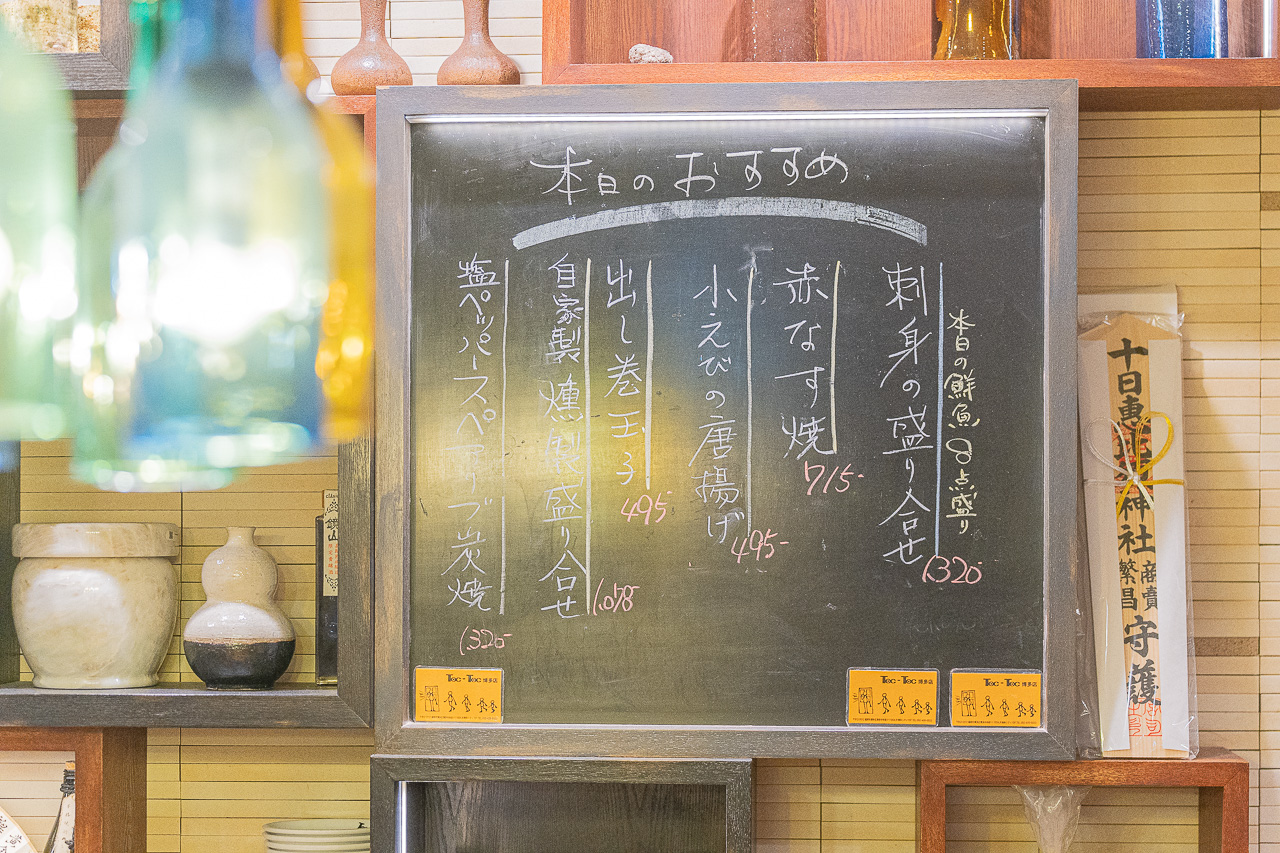 本日のおすすめ
本日の鮮魚8点盛り
刺身の盛り合せ
1,320
赤なす焼
715-
小えびの唐揚げ
495-
出し巻玉子
495-
自家製燻製盛り合せ
1,078
塩ペッパースペアリブ炭焼
1,320-
Tec-Tec 博多店
Tec-Tec 博多店
Tec-Tec 博多店
十日恵比須神社
商賣
繁昌
守護